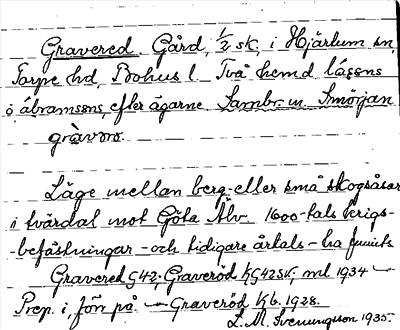 Gravered. Gård, 1/2 sk, i Hjärtum sn,
Torpe hd, Bohus l. Två hemd låssns
o åbramssns, efter ägarne. Sambr. m. Smörjan
gravarö.
Läge mellan berg- eller små skogsåsar
i tvärdal mot Göta Älv. 1600-tals krigs-
-befästningar - och tidigare årtals - ha funnits
Gravered G42; Graveröd KG42SK; ml 1934 -
Prep. i, förr på. - Graveröd Kb. 1928.
L. M. Svenungsson 1935.